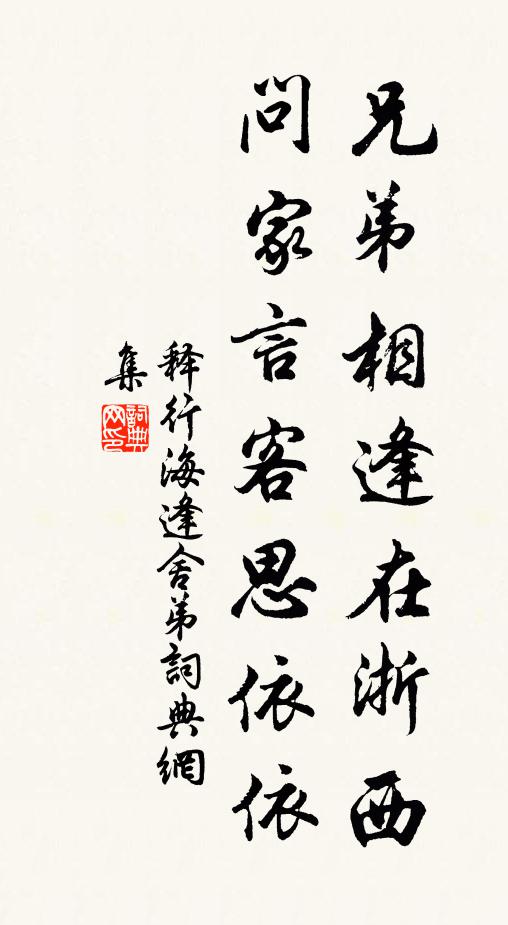 兄弟相逢在浙西
問家言客思依依
释行海逢舍弟詞典網
集
詞典
网印